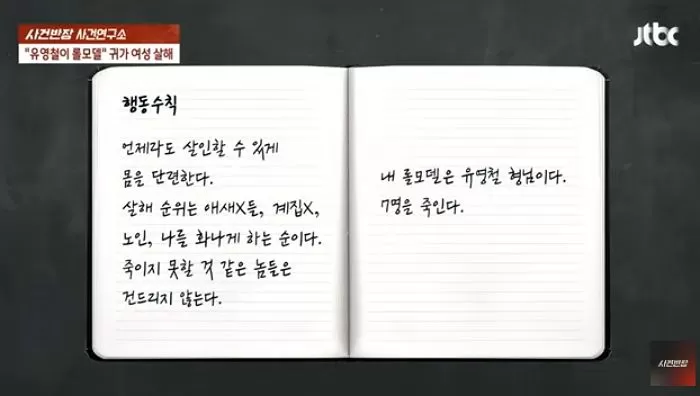 사건반장 사건연구소
"유영철이 롤모델" 귀가 여성 살해
jtbc
행동수칙
언제라도 살인할 수 있게
몸을 단련한다.
살해 순위는 애새X들, 계집X,
노인, 나를 화나게 하는 순이다.
죽이지 못할 것 같은 놈들은
건드리지 않는다.
내 롤모델은 유영철 형님이다.
7명을 죽인다.
사건반장